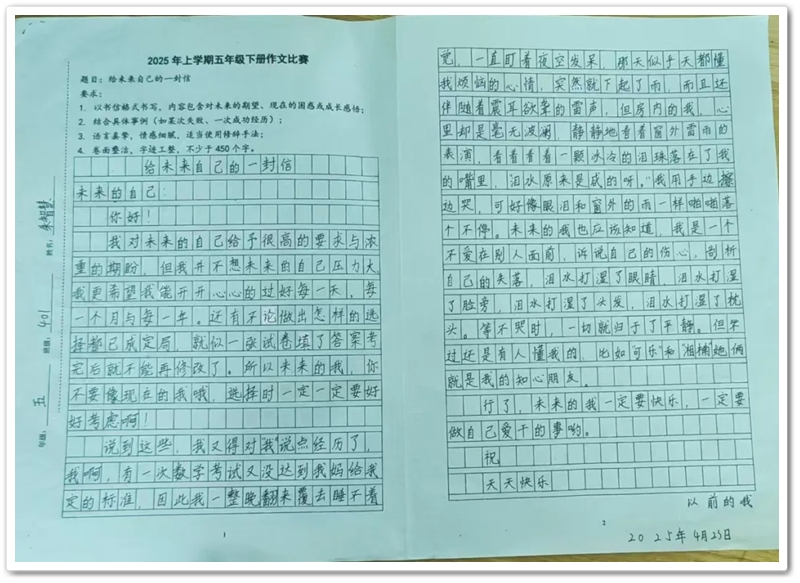 2025年上学期五年级下册作文比赛
题目：给未来自己的一封信
要求：
1. 以书信格式书写，内容包含对未来的期望、现在的困惑或成长感悟；
2. 结合具体事例（如某次失败、一次成功经历）；
3. 语言真挚，情感细腻，适当使用修辞手法；
4. 卷面整洁，字迹工整，不少于450个字。
姓名：
班级：401
年级：五
给未来自己的一封信
未来的自己：
你好！
我对未来的自己给予很高的要求与浓
重的期盼，但我并不想未来的自己压力大，
我更希望我能开开心心的过好每一天，每
一个月与每一年。还有不论做出怎样的选
择都已成定局，就似一张试卷填了答案考
完后就不能再修改了。所以未来的我，你
不要像现在的我哦，选择时一定一定要好
好考虑啊！
说到这些，我又得对“我”说点经历了，
我啊，有一次数学考试又没达到我妈给我
定的标准，因此我一整晚翻来覆去睡不着
1
觉，一直盯着夜空发呆，那天似乎天都懂
我烦恼的心情，突然就下起了雨，而且还
伴随着震耳欲聋的雷声，但房内的我，心
里却是毫无波澜，静静地看着窗外雷雨的
表演，看着看着一颗冰冷的泪珠落在了我
的嘴里，“泪水原来是咸的呀。”我用手边擦
边哭，可好像眼泪和窗外的雨一样啪啪落
个不停。未来的我也应该知道，我是一个
不爱在别人面前，诉说自己的伤心，剖析
自己的失落，泪水打湿了眼睛，泪水打湿
了脸旁，泪水打湿了头发，泪水打湿了枕
头。等不哭时，一切就归于了平静。但不
过还是有人懂我的，比如“可乐”和“湘楠”她俩
就是我的知心朋友。
行了，未来的我一定要快乐，一定要
做自己爱干的事哟。
祝
天天快乐
以前的我
2
2025年4月23日